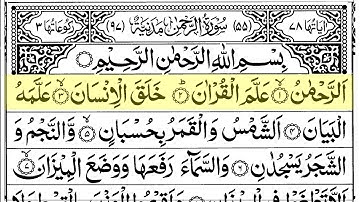 اٰيَاتُهَا ٧٨ (٥٥) سُوْرَةُ الرَّحْمٰنِ مَدَنِيَّةٌ (٩٧) رُكُوْعَاتُهَا ٣
بِسْمِ اللّٰهِ الرَّحْمٰنِ الرَّحِيْمِ
اَلرَّحْمٰنُ ۙ‏﴿۱﴾ عَلَّمَ الْقُرْاٰنَ ؕ‏﴿۲﴾ خَلَقَ الْاِنْسَانَ ۙ‏﴿۳﴾ عَلَّمَهُ
الْبَيَانَ ﴿۴﴾ اَلشَّمْسُ وَالْقَمَرُ بِحُسْبَانٍ ﴿۵﴾ وَّالنَّجْمُ وَ
الشَّجَرُ يَسْجُدٰنِ ﴿۶﴾ وَالسَّمَآءَ رَفَعَهَا وَوَضَعَ الْمِيْزَانَ ۙ‏﴿۷﴾